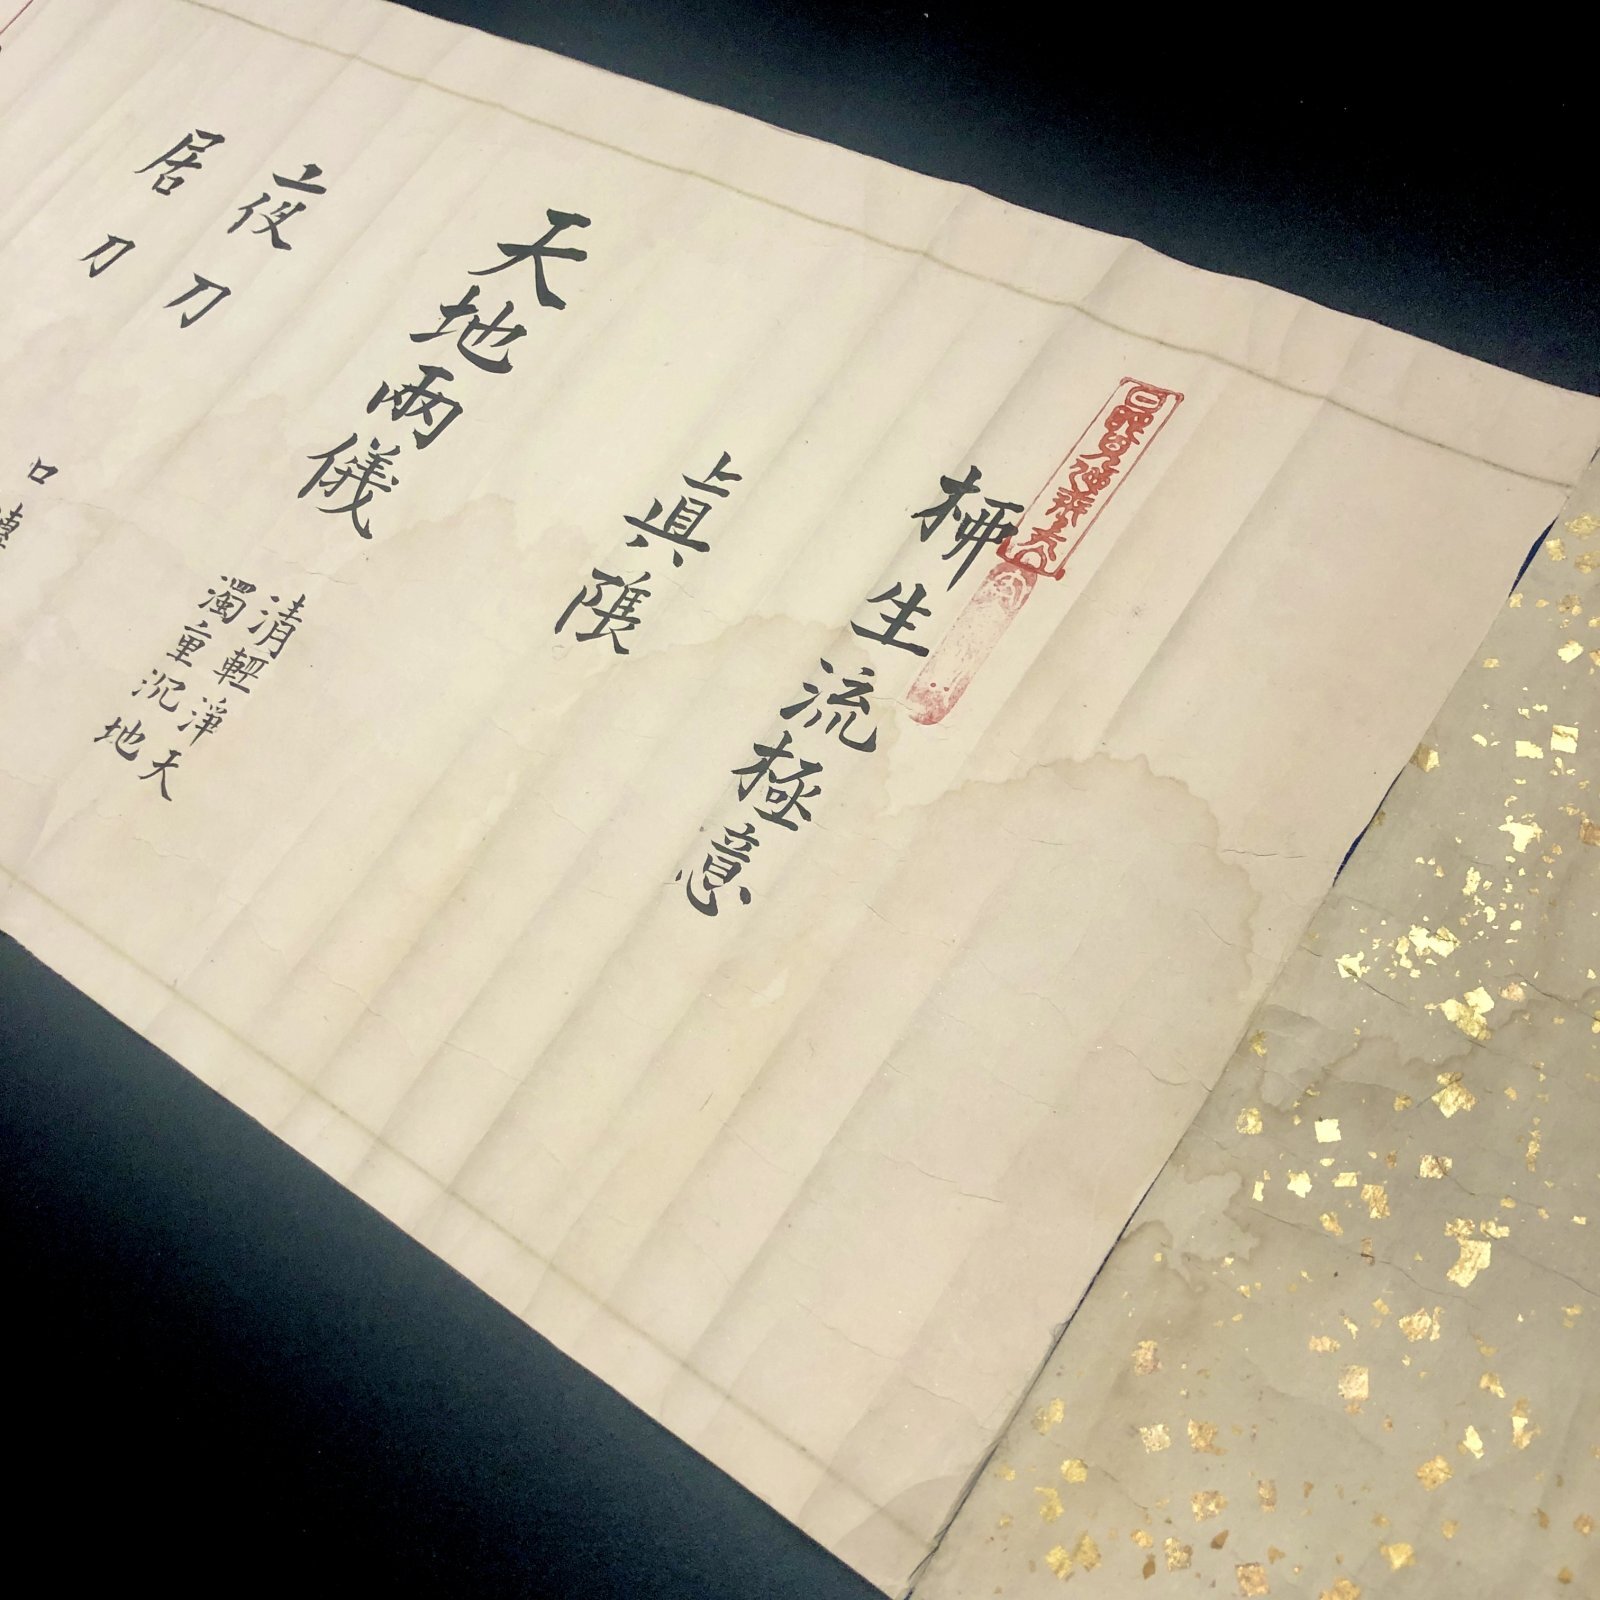 柳生流極意
眞
天地兩儀
清輕淨天
濁重沉地
夜刀
居刀
口傳